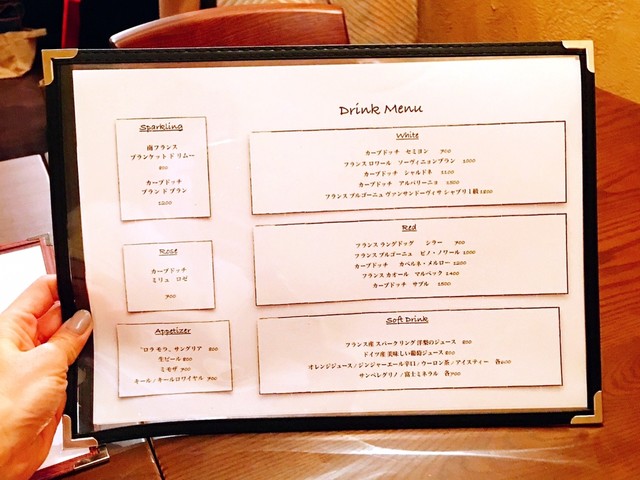 Drink Menu
Sparkling
南フランス
ブランケット ド リムー
800
カーブドッチ
ブラン ド ブラン
1200
Rose
カーブドッチ
ミリュ ロゼ
700
Appetizer
"ロラ モラ、サングリア 800
生ビール 800
ミモザ 700
キール / キールロワイヤル 700
White
カーブドッチ セミヨン 700
フランス ロワール ソーヴィニョンブラン 1000
カーブドッチ シャルドネ 1100
カーブドッチ アルバリーニョ 1500
フランス ブルゴーニュ ヴァンサンドーヴィサ シャブリ1級 1800
Red
フランス ラングドッグ シラー 700
フランス ブルゴーニュ ピノ・ノワール 1000
カーブドッチ カベルネ・メルロー 1200
フランス カオール マルベック 1400
カーブドッチ サブル 1500
Soft Drink
フランス産 スパークリング 洋梨のジュース 800
ドイツ産 美味しい葡萄ジュース 800
オレンジジュース / ジンジャーエール辛口 / ウーロン茶 / アイスティー 各600
サンペレグリノ / 富士ミネラル 各700